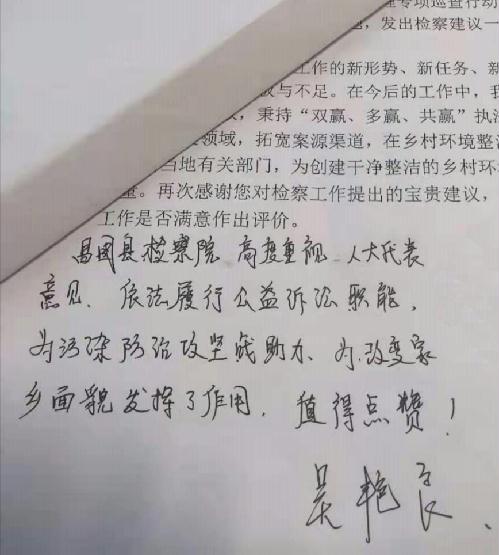 理专项巡查行动
，发出检察建议一
工作的新形势、新任务、新
与不足。在今后的工作中，我
，秉持“双赢、多赢、共赢”执法
领域，拓宽案源渠道，在乡村环境整治
当地有关部门，为创建干净整洁的乡村环境
量。再次感谢您对检察工作提出的宝贵建议，
工作是否满意作出评价。
昌图县检察院 高度重视 人大代表
意见、依法履行公益诉讼职能，
为污染防治攻坚战助力、为改变家
乡面貌发挥了作用，值得点赞！
吴艳良